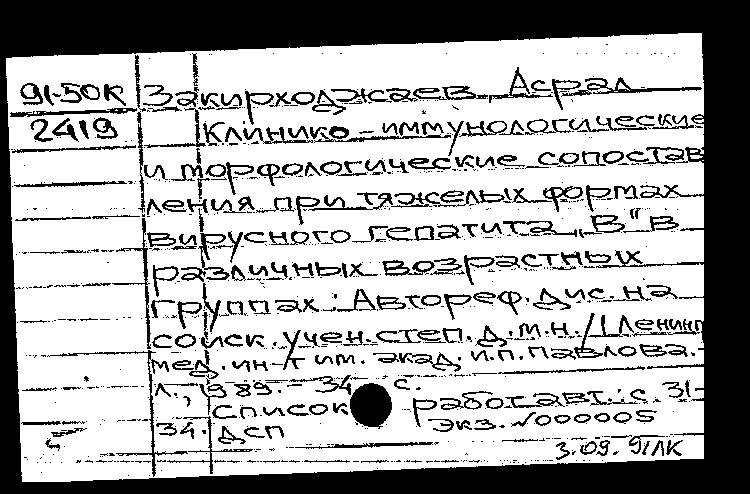 91-50К Закирходжаев, Асрал
2419 Клинико-иммунологические
и морфологические сопостав
ления при тяжелых формах
вирусного гепатита „В" в
различных возрастных
группах: Автореф. дис. на
соиск. учен. степ. д.м.н./1 Ленинг
мед. ин-т им. акад. И.П. Павлова.-
Л., 1989.- 34 с.
Список работ авт.: с. 31-
34. ДСП Экз. №000005
3.09.91ЛК